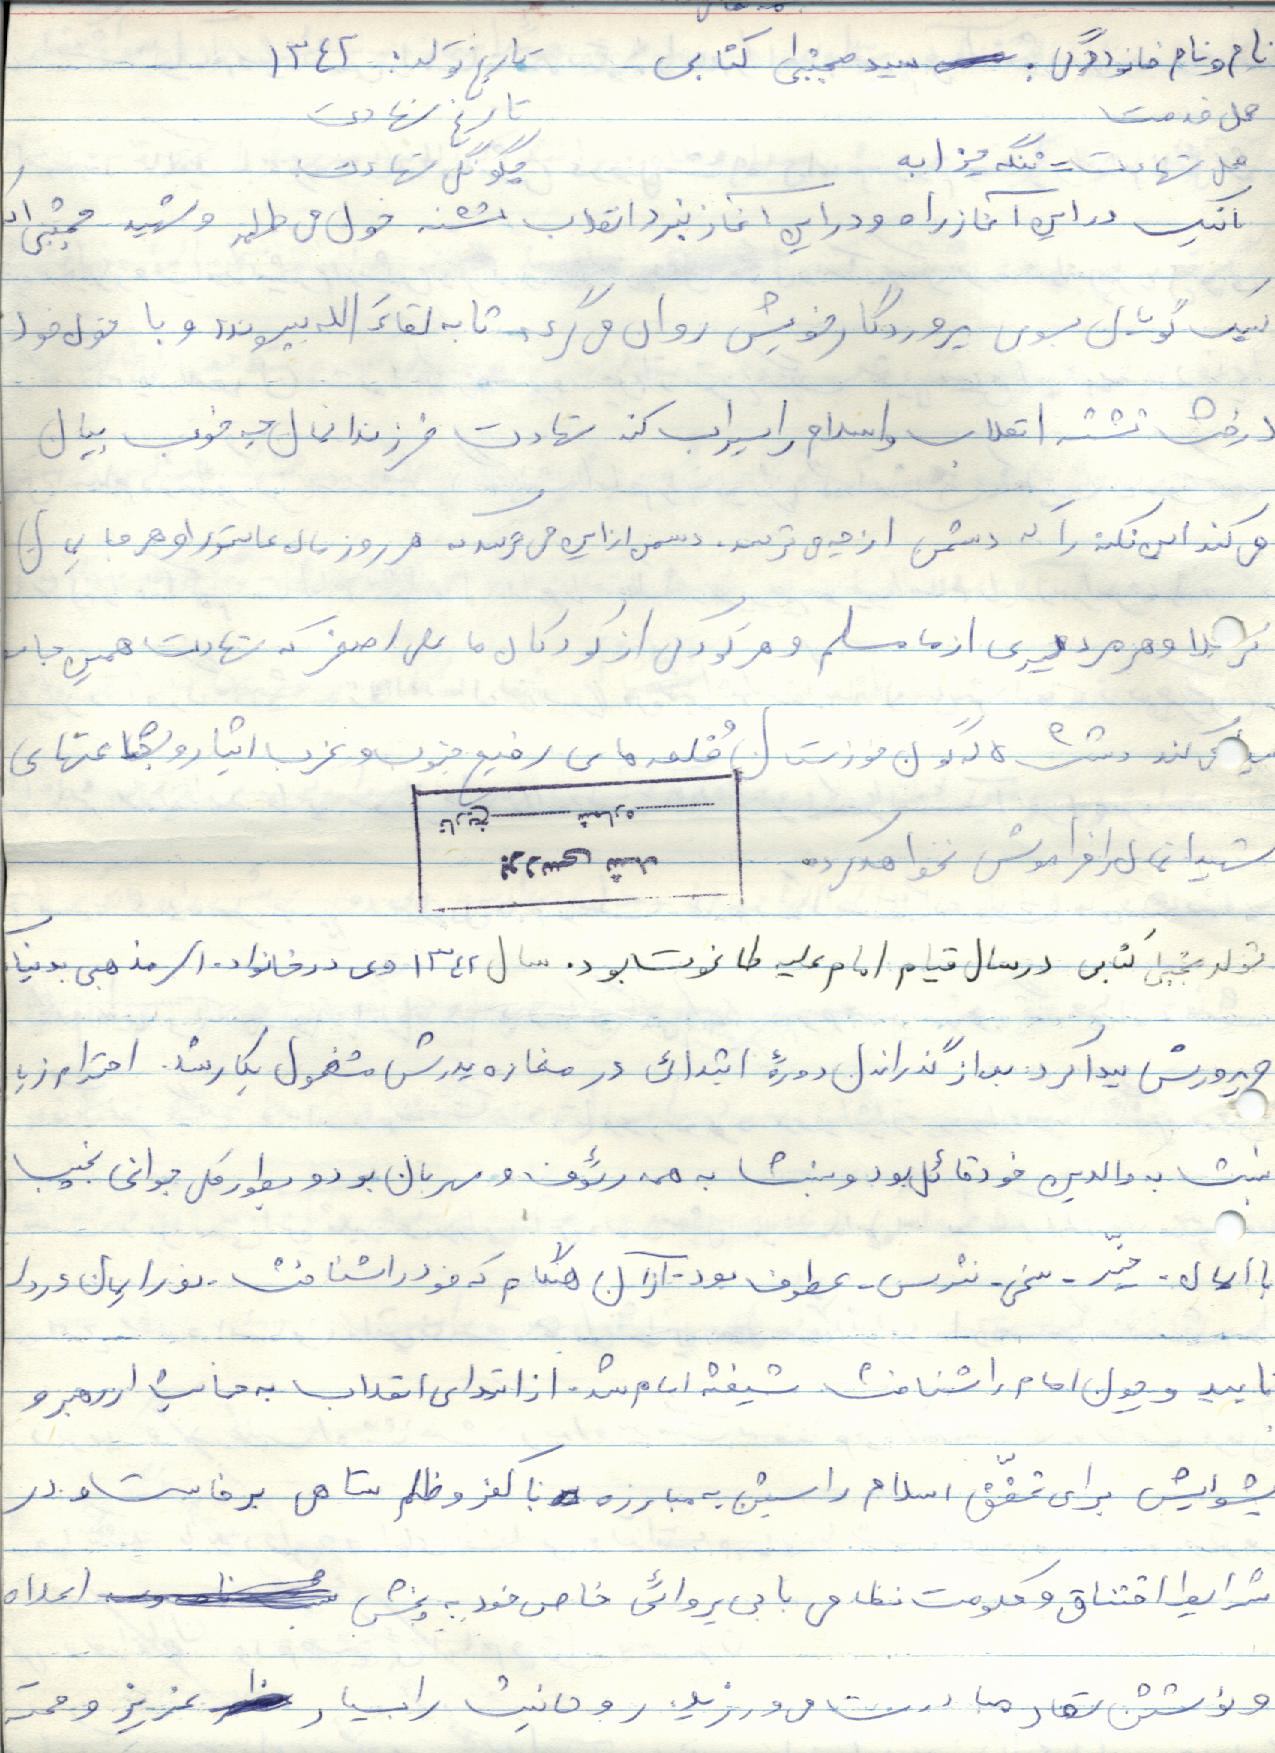 نام و نام خانوادگی: سید مجتبی کتابی تاریخ تولد: ۱۳۴۲
محل خدمت تاریخ شهادت
محل شهادت - تنگه چزابه چگونگی شهادت:
اینک در این آغاز راه و در این آغاز نبرد انقلاب تشنه خون می‌طلبد و شهید مجتبی
لبیک گویان بسوی پروردگار خویش روان می‌گردد تا به لقاءالله بپیوندد و با خون خود
درخت تشنه انقلاب و اسلام را سیراب کند شهادت فرزندانمان چه خوب بیان
می‌کند این نکته را که دشمن از چه می‌ترسد. دشمن از این می‌ترسد که هر روز مان عاشورا و هر جای مان
کربلا و هر مرد پیری از ما مسلم و هر کودکی از کودکان ما علی اصغر که شهادت همین
می کند دشت لاله گون خوزستان و قلعه های رفیع جنوب و غرب ایثار و شجاعتهای
شهیدانمان را فراموش نخواهد کرد.
تاریخ شماره
بررسی شد
تولد مجتبی کتابی در سال قیام امام علیه طاغوت بود. سال ۱۳۴۲ وی در خانواده ای مذهبی بدنیا
و پرورش پیدا کرد. بعد از گذراندن دورهٔ ابتدائی در مغازه پدرش مشغول بکار شد. احترام
نسبت به والدین خود قائل بود و نسبت به همه رئوف و مهربان بود و بطور کلی جوانی نجیب
با ایمان - خیّر - سخی - نترس - عطوف بود. از آن هنگام که خود را شناخت - نور ایمان در دل
تابید و چون امام را شناخت شیفته امام شد. از ابتدای انقلاب به حمایت از رهبر و
پیشوایش برای تحقّق اسلام راستین به مبارزه با کفر و ظلم شاهی برخاست و در
شرایط اختناق و حکومت نظامی با بی پروائی خاص خود به پخش اعلامیه
و نوشتن شعار مبادرت می ورزید. روحانیت را بسیار عزیز و